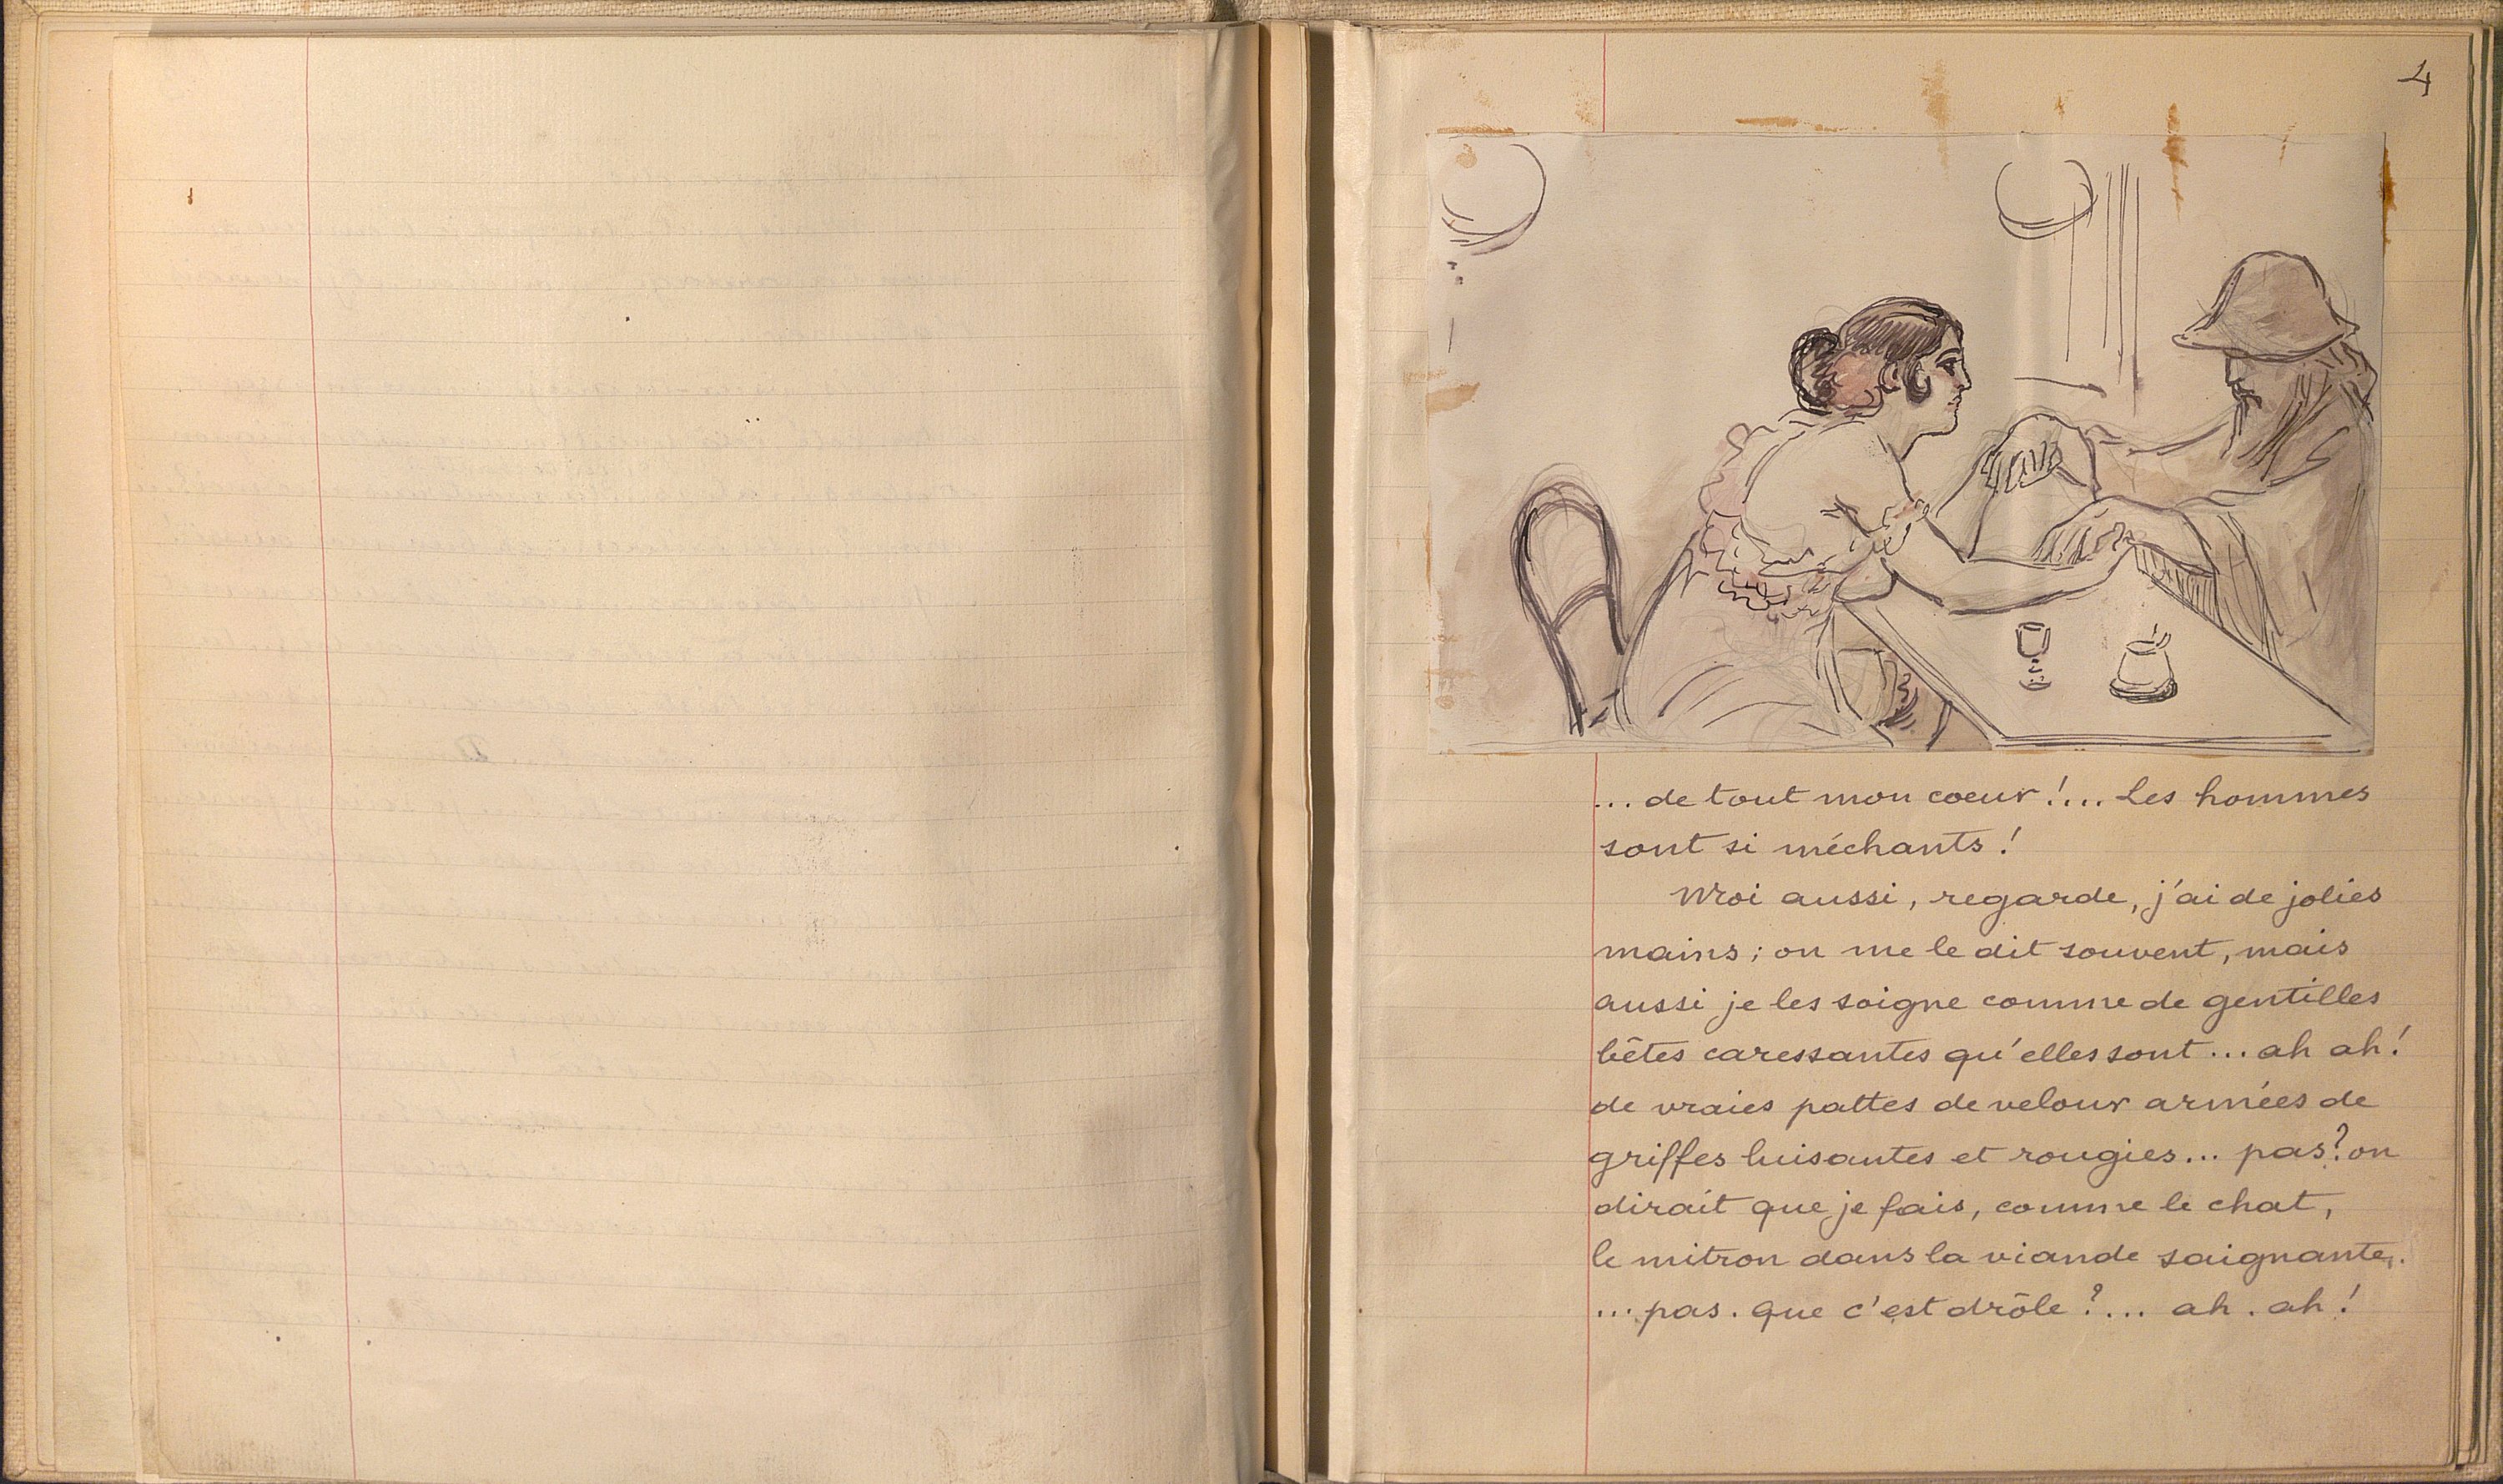 4
... de tout mon coeur !.... Les hommes
sont si méchants !
Moi aussi, regarde, j'ai de jolies
mains ; on me le dit souvent, mais
aussi je les soigne comme de gentilles
bêtes caressantes qu'elles sont ... ah ah !
de vraies pattes de velour armées de
griffes luisantes et rougies ... pas ? on
dirait que je fais, comme le chat,
le mitron dans la viande saignante.
... pas . que c'est drôle ?.... ah . ah !